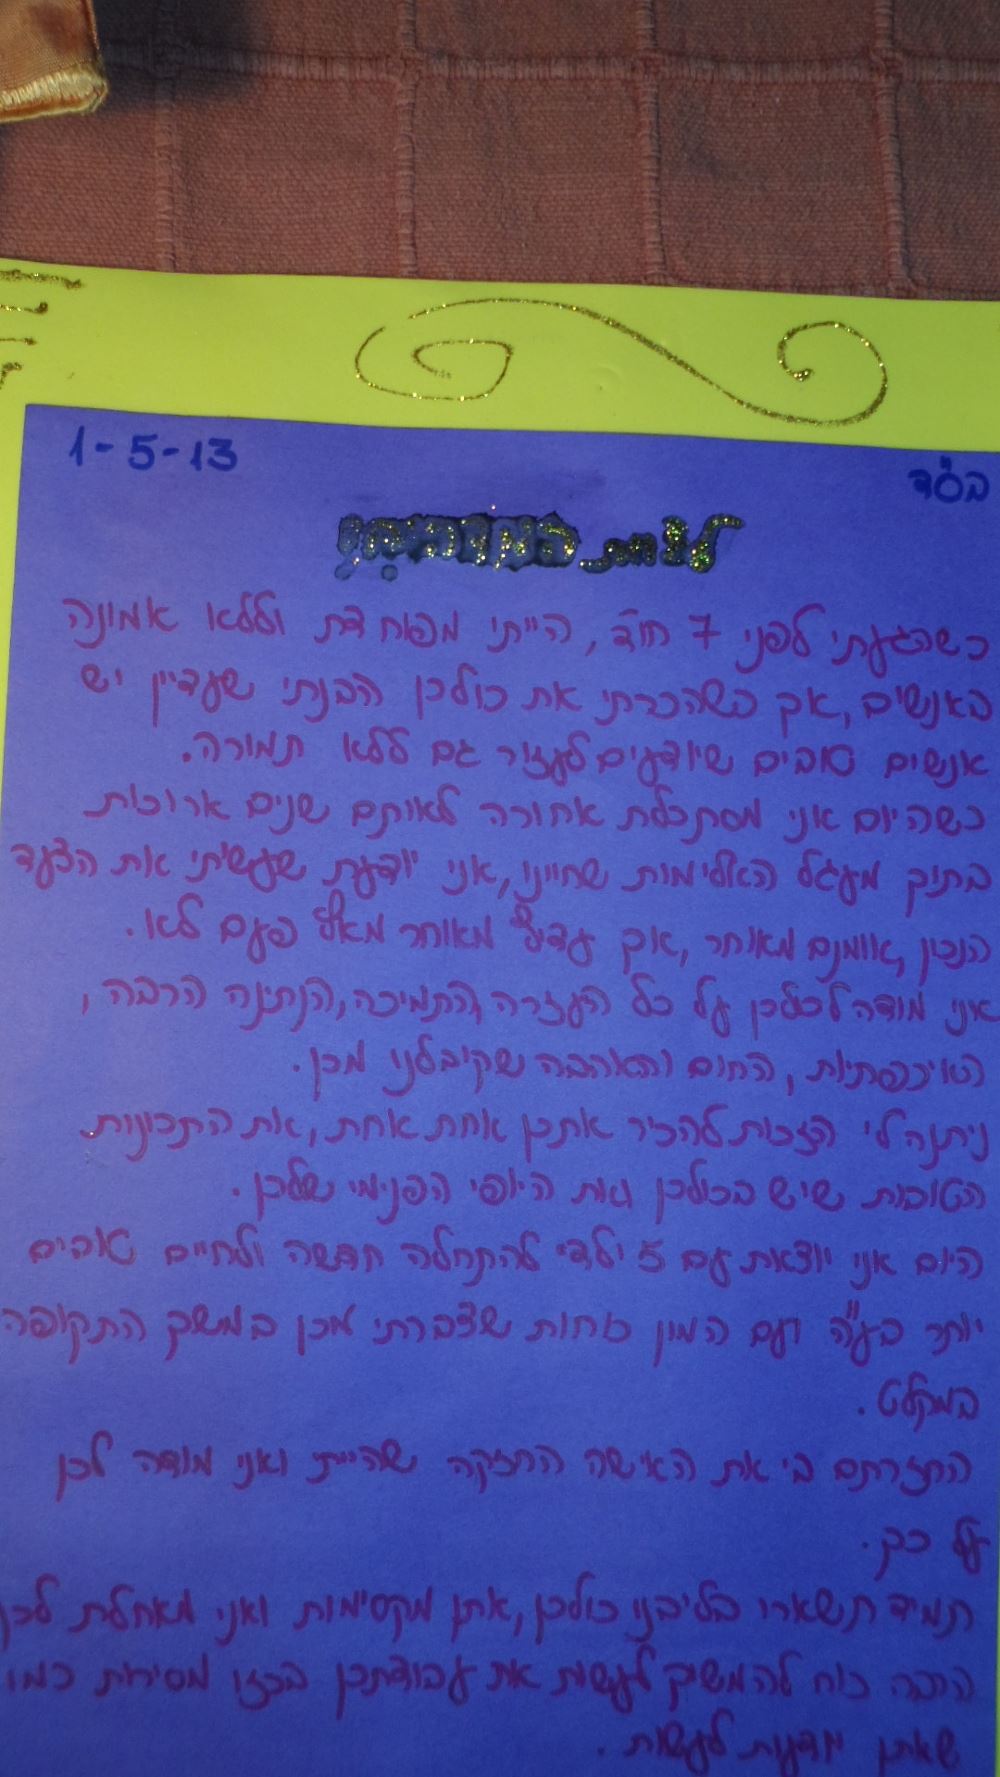 1-5-13
בס"ד
לצוות המדהים
כשהגעתי לפני 7 חוד', הייתי מפוחדת וללא אמונה
באנשים, אך כשהכרתי את כולכן הבנתי שעדיין יש
אנשים טובים שיודעים לעזור גם ללא תמורה.
כשהיום אני מסתכלת אחורה לאותם שנים ארוכות
בתוך מעגל האלימות שחווינו, אני יודעת שעשיתי את הצעד
הנכון, אומנם מאוחר, אך עדיף מאוחר מאף פעם לא.
אני מודה לכולכן על כל העזרה, התמיכה, הנתינה הרבה,
האיכפתיות, החום והאהבה שקיבלנו מכן.
ניתנה לי הזכות להכיר אתכן אחת אחת, את התכונות
הטובות שיש בכולכן ואת היופי הפנימי שלכן.
היום אני יוצאת עם 5 ילדי להתחלה חדשה ולחיים טובים
יותר בע"ה ועם המון כוחות שצברתי מכן במשך התקופה
במקלט.
החזרתם בי את האישה החזקה שהייתי ואני מודה לכן
על כך.
תמיד תשארו בליבנו כולכן, אתן מקסימות ואני מאחלת לכן
הרבה כוח להמשיך לעשות את עבודתכן בכזו מסירות כמו
שאתן יודעות לעשות.